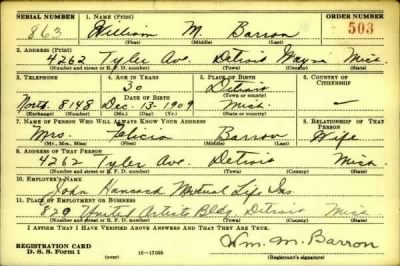 SERIAL NUMBER 1. NAME (Print) ORDER NUMBER
863 William M. Barron 503
(First) (Middle) (Last)
2. ADDRESS (Print)
4262 Tyler Ave. Detroit Wayne Mich.
(Number and street or R. F. D. number) (Town) (County) (State)
3. TELEPHONE 4. AGE IN YEARS 5. PLACE OF BIRTH 6. COUNTRY OF CITIZENSHIP
30 Detroit
DATE OF BIRTH (Town or county)
8148 Dec-13-1909 Mich. —
(Exchange) (Number) (Mo.) (Day) (Yr.) (State or country)
7. NAME OF PERSON WHO WILL ALWAYS KNOW YOUR ADDRESS 8. RELATIONSHIP OF THAT PERSON
Mrs. Felicia Barron Wife
(Mr., Mrs., Miss) (First) (Middle) (Last)
9. ADDRESS OF THAT PERSON
4262 Tyler Ave. Detroit Mich.
(Number and street or R. F. D. number) (Town) (County) (State)
10. EMPLOYER'S NAME
John Hancock Mutual Life Ins.
11. PLACE OF EMPLOYMENT OR BUSINESS
829 United Artists Bldg. Detroit Mich
(Number and street or R. F. D. number) (Town) (County) (State)
I AFFIRM THAT I HAVE VERIFIED ABOVE ANSWERS AND THAT THEY ARE TRUE.
REGISTRATION CARD
D. S. S. Form 1 (over) Wm. M. Barron
(Registrant's signature)